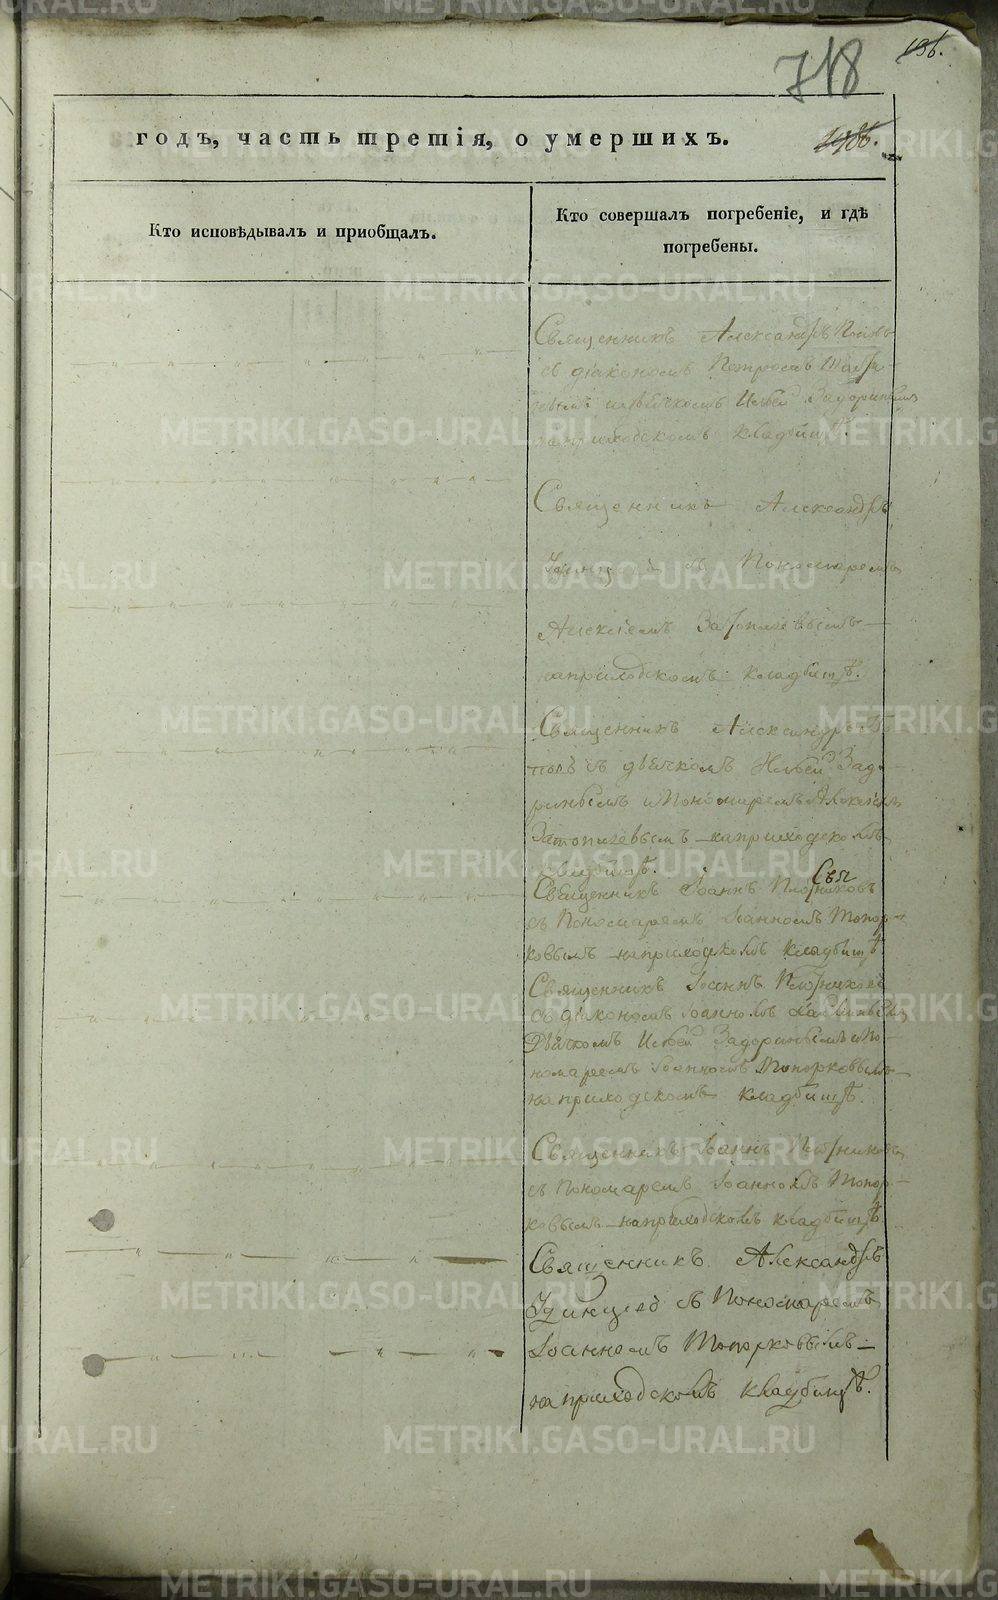 718
136.
годъ, часть третія, о умершихъ.
Кто исповѣдывалъ и приобщалъ.
Кто совершалъ погребеніе, и гдѣ
погребены.
Священникъ Александръ Попов
съ діакономъ Петромъ
и дьячкомъ Ильей Задоринымъ
на приходскомъ кладбищѣ.
Священникъ Александръ
Удинцевъ съ Пономаремъ
Алексіемъ Затопляевымъ
на приходскомъ кладбищѣ.
Священникъ Александръ По-
повъ съ дьячкомъ Ильей Задо-
ринымъ и Пономаремъ Алексіемъ
Затопляевымъ на приходскомъ
кладбищѣ.
Священникъ Іоаннъ Плотниковъ
съ Пономаремъ Іоанномъ Топор-
ковымъ на приходскомъ кладбищѣ
Священникъ Іоаннъ Плотниковъ
съ діакономъ Іоанномъ
Дьячкомъ Ильей Задоринымъ и По-
номаремъ Іоанномъ Топорковымъ
на приходскомъ кладбищѣ.
Священникъ Іоаннъ Плотниковъ
съ Пономаремъ Іоанномъ Топор-
ковымъ на приходскомъ кладбищѣ
Священникъ Александръ
Удинцевъ съ Пономаремъ
Іоанномъ Топорковымъ
на приходскомъ кладбищѣ.
METRIKI.GASO-URAL.RU